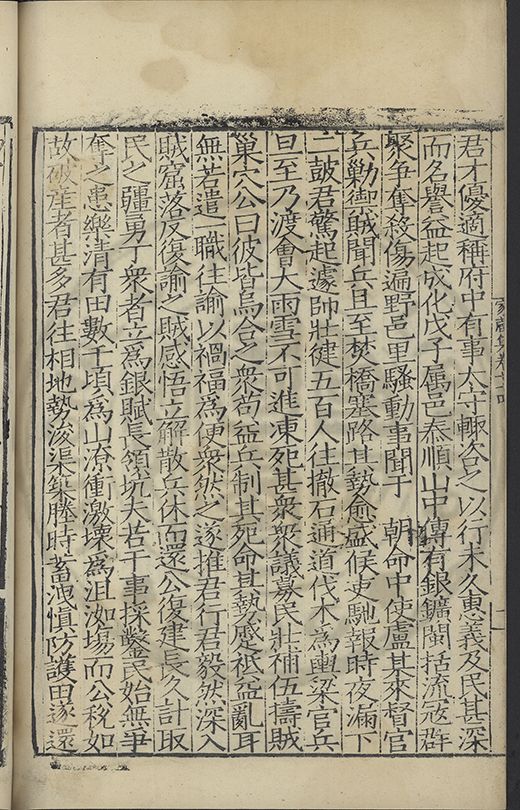 君才優適稱府中有事太守輙咨之以行未久惠義及民甚深
而名譽益起成化戊子属邑泰順山中傳有銀鑛閩括流寇群
聚争奪殺傷遍野邑里騷動事聞于　朝命中使盧某來督官
兵勦御賊聞兵且至焚橋塞路其勢愈猛候吏馳報時夜漏下
二鼓君驚起遽帥壯健五百人往撤石通道伐木為輿梁官兵
旦至乃渡會大雨雪不可進凍死甚衆衆議募民壯補伍擣賊
巢穴公曰彼皆烏合之衆苟益兵制其死命其勢蹙祇益亂耳
無若遣一職往諭以禍福為便衆然之遂推君行君毅然深入
賊窟落反復諭之賊感悟立解散兵休而還公復建長久計取
民之彊勇丁衆者立為銀賦長領坑夫若干事採鑿民始無爭
奪之患樂清有田數千頃為山潦衝激壊為沮洳場而公稅如
故破産者甚多君往相地勢浚渠築塍時畜洩慎防護田遂還